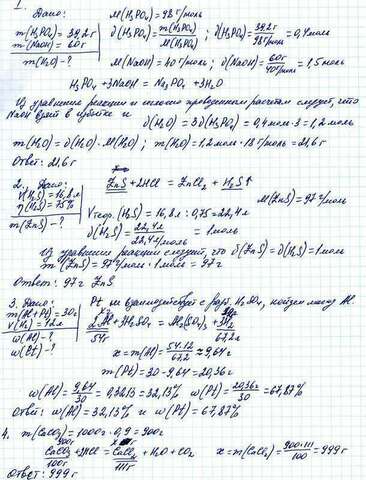 1. Дано:
m(H₃PO₄) = 39,2г
m(NaOH) = 60г
m(H₂O) - ?
M(H₃PO₄) = 98 г/моль
ν(H₃PO₄) = m(H₃PO₄)/M(H₃PO₄) ; ν(H₃PO₄) = 39,2г/98г/моль = 0,4моль
M(NaOH) = 40г/моль ; ν(NaOH) = 60г/40г/моль = 1,5моль
H₃PO₄ + 3NaOH = Na₃PO₄ + 3H₂O
Из уравнения реакции и исходно проведенным расчетам следует, что
NaOH взят в избытке и ν(H₂O) = 3ν(H₃PO₄) = 0,4моль·3 = 1,2моль
m(H₂O) = ν(H₂O)·M(H₂O) ; m(H₂O) = 1,2моль·18г/моль = 21,6г
Ответ: 21,6г
2. Дано:
V(H₂S) = 16,8л
η(H₂S) = 75%
m(ZnS) - ?
ZnS + 2HCl = ZnCl₂ + H₂S↑
M(ZnS) = 97г/моль
Vтеор.(H₂S) = 16,8л : 0,75 = 22,4л
ν(H₂S) = 22,4л/22,4л/моль = 1моль
Из уравнения реакции следует, что ν(ZnS) = ν(H₂S) = 1моль
m(ZnS) = 97г/моль · 1моль = 97г
Ответ: 97г ZnS
3. Дано:
m(Al+Pt) = 30г
V(H₂) = 12л
w(Al) - ?
w(Pt) - ?
Pt не взаимодействует с разб. H₂SO₄, найдем массу Al.
2Al + 3H₂SO₄ = Al₂(SO₄)₃ + 3H₂
54г 67,2л
x = m(Al) = 54·12/67,2 ≈ 9,64г
m(Pt) = 30 - 9,64 = 20,36г
w(Al) = 9,64/30 = 0,3213 = 32,13% w(Pt) = 20,36/30 = 67,87%
Ответ: w(Al) = 32,13% и w(Pt) = 67,87%
4. m(CaCO₃) = 1000г · 0,9 = 900г
900г xг
CaCO₃ + 2HCl = CaCl₂ + H₂O + CO₂
100г 111г
x = m(CaCl₂) = 900·111/100 = 999г
Ответ: 999г